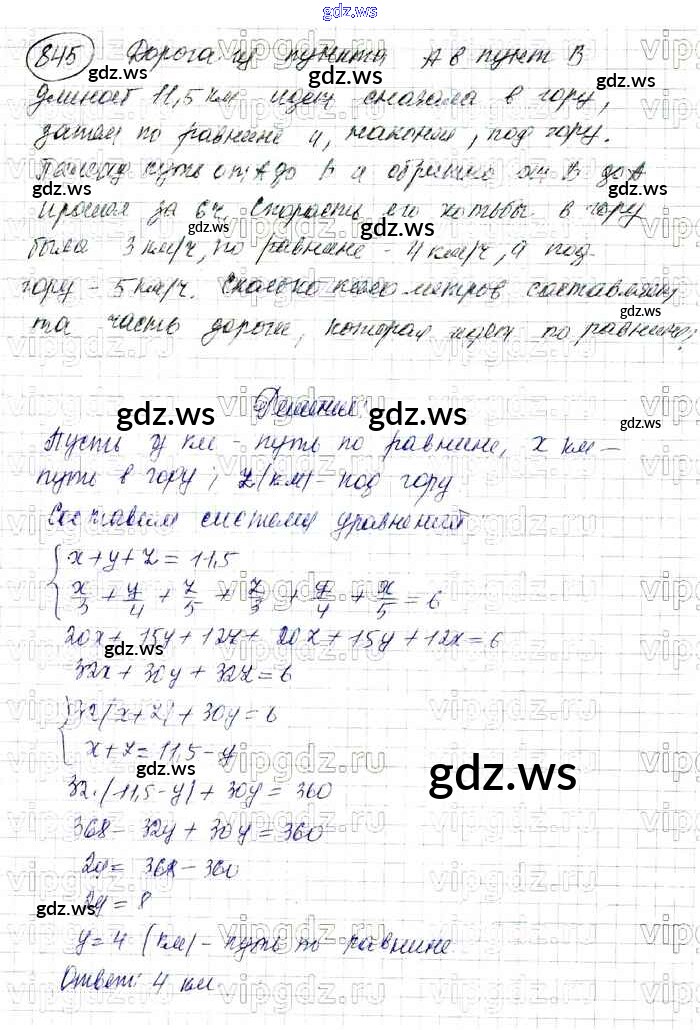 gdz.ws
845 Дорога из пункта А в пункт В
длиной 11,5 км идет сначала в гору,
затем по равнине и, наконец, под гору.
путь от А до В и обратно от В до А
прошел за 6ч. Скорость его ходьбы в гору
была 3 км/ч, по равнине - 4 км/ч, а под
гору - 5 км/ч. Сколько километров составляет
та часть дороги, которая идет по равнине?
Решение:
Пусть y км - путь по равнине, x км -
путь в гору; z(км) - под гору
Составим систему уравнений
x+y+z=11,5
x/3 + y/4 + z/5 + z/3 + y/4 + x/5 = 6
20x+ 15y+12z+ 20x+15y+12x=6
32x+ 30y+ 32z=6
32(x+z)+30y=6
x+z=11,5-y
32·(11,5-y)+30y=360
368-32y+30y=360
2y= 368-360
2y=8
y=4 (км) - путь по равнине
Ответ: 4 км.